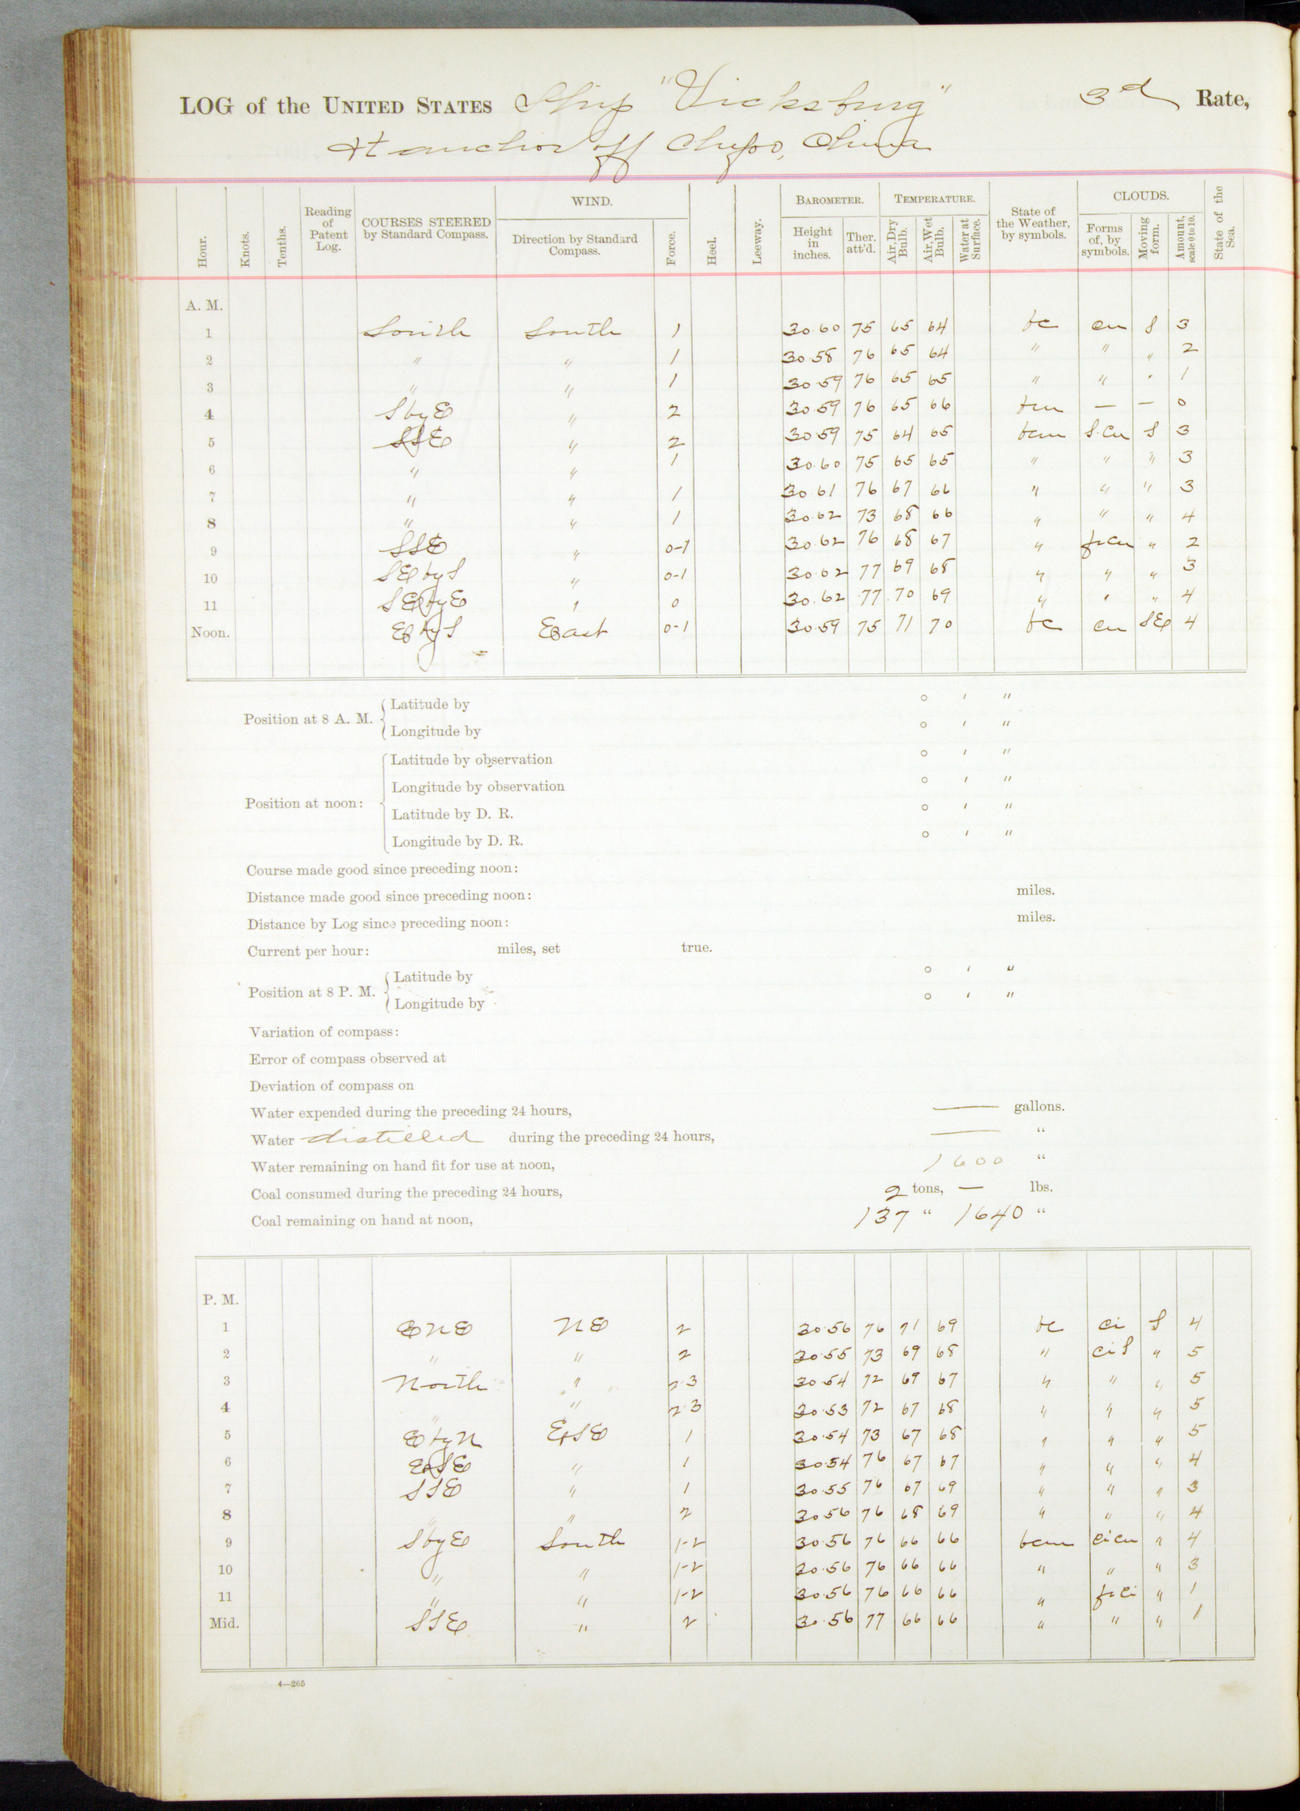 LOG of the UNITED STATES Ship "Vicksburg" 3d Rate,
At anchor off Chefoo, China
Hour. Knots. Tenths. Reading of Patent Log. COURSES STEERED by Standard Compass. WIND. Direction by Standard Compass. Force. Heel. Leeway. BAROMETER. Height in inches. Ther. att'd. TEMPERATURE. Air, Dry Bulb. Air, Wet Bulb. Water at Surface. State of the Weather, by symbols. CLOUDS. Forms of, by symbols. Moving form. Amount, scale 0 to 10. State of the Sea.
A. M.
1 South South 1 30.60 75 65 64 bc cu S 3
2 " " 1 30.58 76 65 64 " " " 2
3 " " 1 30.59 76 65 65 " " " 1
4 S by E " 2 30.59 76 65 66 bm — — 0
5 SSE " 2 30.59 75 64 65 bcm S.cu S 3
6 " " 1 30.60 75 65 65 " " " 3
7 " " 1 30.61 76 67 66 " " " 3
8 " " 1 30.62 73 68 66 " " " 4
9 SSE " 0-1 30.62 76 68 67 " frcu " 2
10 SE by S " 0-1 30.62 77 69 68 " " " 3
11 SE by E " 0 30.62 77 70 69 " " " 4
Noon. E by S East 0-1 30.59 75 71 70 bc cu SE 4
Position at 8 A. M. { Latitude by ° ' "
Longitude by ° ' "
Position at noon: { Latitude by observation ° ' "
Longitude by observation ° ' "
Latitude by D. R. ° ' "
Longitude by D. R. ° ' "
Course made good since preceding noon:
Distance made good since preceding noon: miles.
Distance by Log since preceding noon: miles.
Current per hour: miles, set true.
Position at 8 P. M. { Latitude by ° ' "
Longitude by ° ' "
Variation of compass:
Error of compass observed at
Deviation of compass on
Water expended during the preceding 24 hours, — gallons.
Water distilled during the preceding 24 hours, — "
Water remaining on hand fit for use at noon, 1600 "
Coal consumed during the preceding 24 hours, 2 tons, — lbs.
Coal remaining on hand at noon, 137 " 1640 "
P. M.
1 ENE NE 2 30.56 76 71 69 bc ci S 4
2 " " 2 30.55 73 69 68 " ciS " 5
3 North " 2-3 30.54 72 69 67 " " " 5
4 " " 2-3 30.53 72 67 68 " " " 5
5 E by N ESE 1 30.54 73 67 68 " " " 5
6 ESE " 1 30.54 76 67 67 " " " 4
7 SSE " 1 30.55 76 67 69 " " " 3
8 " " 2 30.56 76 68 69 " " " 4
9 S by E South 1-2 30.56 76 66 66 bcm cicu " 4
10 " " 1-2 30.56 76 66 66 " " " 3
11 " " 1-2 30.56 76 66 66 " frci " 1
Mid. SSE " 2 30.56 77 66 66 " " " 1
4—265